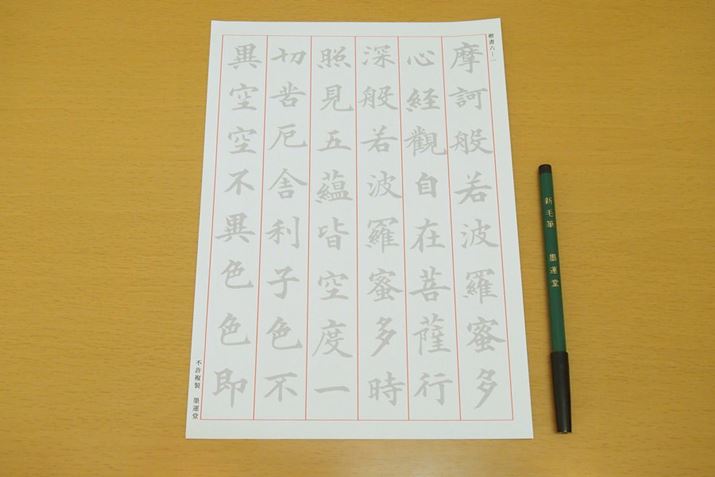 楷書六-一
摩訶般若波羅蜜多
心經觀自在菩薩行
深般若波羅蜜多時
照見五蘊皆空度一
切苦厄舎利子色不
異空空不異色色即
不許複製 墨運堂
新毛筆 墨運堂